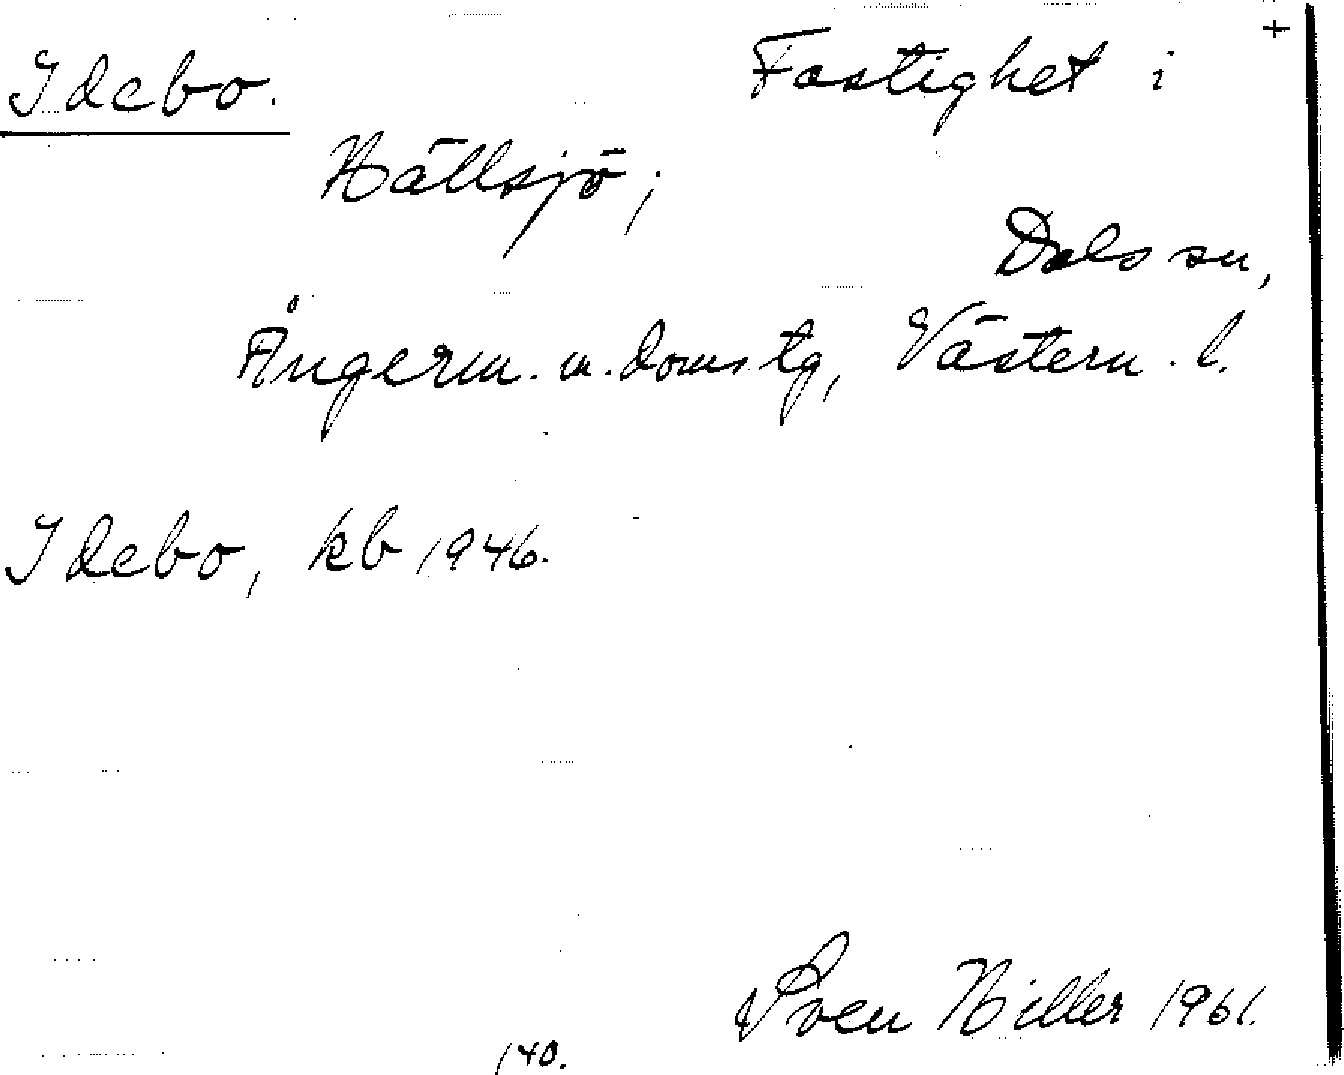 +
Idebo. Fastighet i
Hällsjö;
Dals sn,
Ångerm. m. doms. tg, Västern. l.
Idebo, kb 1946.
Sven Hiller 1961.
140.